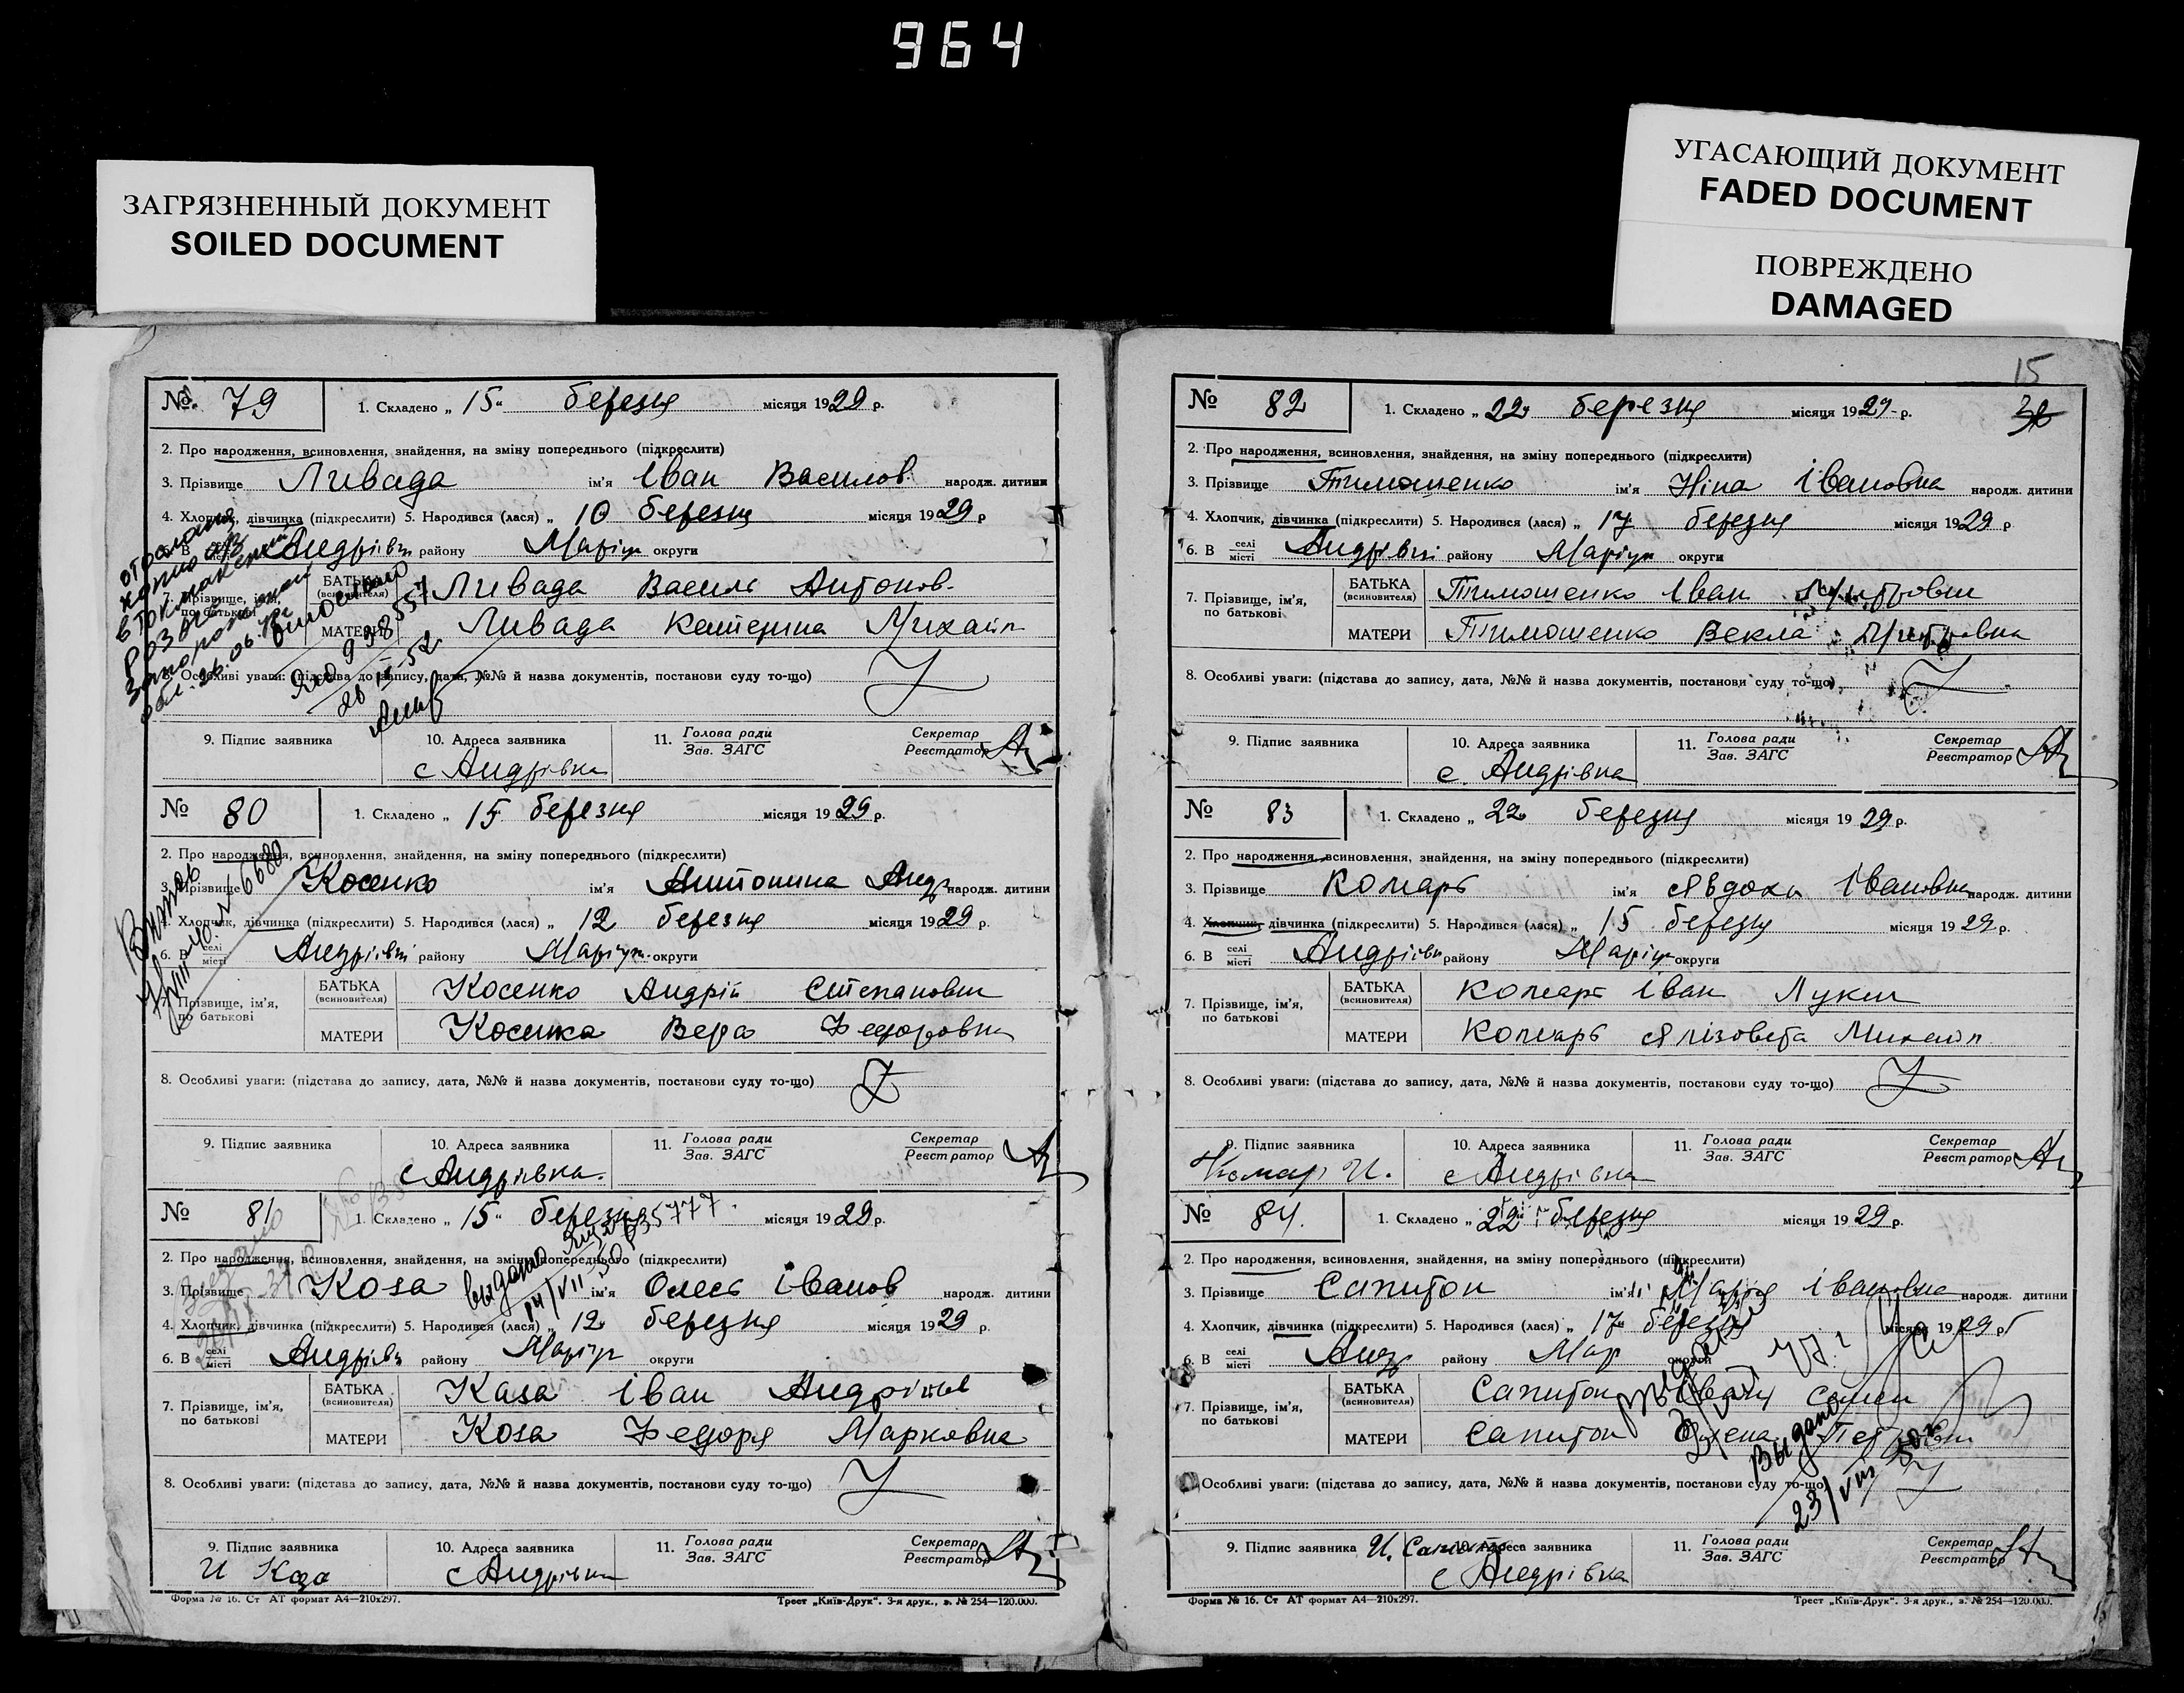 964
ЗАГРЯЗНЕННЫЙ ДОКУМЕНТ
SOILED DOCUMENT
УГАСАЮЩИЙ ДОКУМЕНТ
FADED DOCUMENT
ПОВРЕЖДЕНО
DAMAGED
№ 79 1. Складено „ 15 " березня місяця 1929 р.
2. Про народження, всиновлення, знайдення, на зміну попереднього (підкреслити)
3. Прізвище Ливада ім'я Іван Василов. народж. дитини
4. Хлопчик, дівчинка (підкреслити) 5. Народився (лася) „ 10 березня місяця 1929 р
6. В Андрівці району Маріуп округи
7. Прізвище, ім'я, по батькові
БАТЬКА (всиновителя) Ливада Василь Антонов.
МАТЕРИ Ливада Катерина Михайл
8. Особливі уваги: (підстава до запису, дата, №№ й назва документів, постанови суду то-що)
26 52
9. Підпис заявника 10. Адреса заявника 11. Голова ради Зав. ЗАГС Секретар Реєстратор
с Андрівка
№ 80 1. Складено „ 15 " березня місяця 1929 р.
2. Про народження, всиновлення, знайдення, на зміну попереднього (підкреслити)
3. Прізвище Косенко ім'я Антонина Андр народж. дитини
4. Хлопчик, дівчинка (підкреслити) 5. Народився (лася) „ 12 березня місяця 1929 р.
6. В селі місті Андрівці району Маріуп. округи
7. Прізвище, ім'я, по батькові
БАТЬКА (всиновителя) Косенко Андрій Степанович
МАТЕРИ Косенка Вера Федоровна
8. Особливі уваги: (підстава до запису, дата, №№ й назва документів, постанови суду то-що)
9. Підпис заявника 10. Адреса заявника 11. Голова ради Зав. ЗАГС Секретар Реєстратор
с Андрівка.
№ 81 1. Складено „ 15 " березня місяця 1929 р.
2. Про народження, всиновлення, знайдення, на зміну попереднього (підкреслити)
3. Прізвище Коза ім'я Олесь Іванов народж. дитини
выдано
14/VII 50
4. Хлопчик, дівчинка (підкреслити) 5. Народився (лася) „ 12 березня місяця 1929 р.
6. В селі місті Андрівці району Маріуп округи
7. Прізвище, ім'я, по батькові
БАТЬКА (всиновителя) Каза Іван
МАТЕРИ Коза Федоря Марковна
8. Особливі уваги: (підстава до запису, дата, №№ й назва документів, постанови суду то-що)
9. Підпис заявника 10. Адреса заявника 11. Голова ради Зав. ЗАГС Секретар Реєстратор
И Коза с Андрівка
Форма № 16. Ст АТ формат А4—210х297. Трест „Київ-Друк". 3-я друк., з. № 254—120.000.
15
№ 82 1. Складено „ 22 " березня місяця 1929 р.
2. Про народження, всиновлення, знайдення, на зміну попереднього (підкреслити)
3. Прізвище Тимошенко ім'я Ніна Івановна народж. дитини
4. Хлопчик, дівчинка (підкреслити) 5. Народився (лася) „ 17 березня місяця 1929 р
6. В селі місті Андрівці району Маріуп округи
7. Прізвище, ім'я, по батькові
БАТЬКА (всиновителя) Тимошенко Іван
МАТЕРИ Тимошенко Векла
8. Особливі уваги: (підстава до запису, дата, №№ й назва документів, постанови суду то-що)
9. Підпис заявника 10. Адреса заявника 11. Голова ради Зав. ЗАГС Секретар Реєстратор
с. Андрівка
№ 83 1. Складено „ 22 " березня місяця 1929 р.
2. Про народження, всиновлення, знайдення, на зміну попереднього (підкреслити)
3. Прізвище Комарь ім'я Явдоха Івановна народж. дитини
4. Хлопчик, дівчинка (підкреслити) 5. Народився (лася) „ 15 березня місяця 1929 р.
6. В селі місті Андрівці району Маріуп округи
7. Прізвище, ім'я, по батькові
БАТЬКА (всиновителя) Комарь Іван Лукич
МАТЕРИ Комарь Ялізовета Михайл
8. Особливі уваги: (підстава до запису, дата, №№ й назва документів, постанови суду то-що)
9. Підпис заявника 10. Адреса заявника 11. Голова ради Зав. ЗАГС Секретар Реєстратор
Комар И. с Андрівка
№ 84. 1. Складено „ 22 " березня місяця 1929 р.
2. Про народження, всиновлення, знайдення, на зміну попереднього (підкреслити)
3. Прізвище Сапитон ім'я Марія Івановна народж. дитини
4. Хлопчик, дівчинка (підкреслити) 5. Народився (лася) „ 17 березня місяця 1929 р
6. В селі місті Андр району Мар округи
7. Прізвище, ім'я, по батькові
БАТЬКА (всиновителя) Сапитон Іван Семен
МАТЕРИ Сапитон
Выдано
23/VIII
8. Особливі уваги: (підстава до запису, дата, №№ й назва документів, постанови суду то-що)
9. Підпис заявника И. 10. Адреса заявника 11. Голова ради Зав. ЗАГС Секретар Реєстратор
с Андрівка
Форма № 16. Ст АТ формат А4—210х297. Трест „Київ-Друк". 3-я друк., з. № 254—120.000.